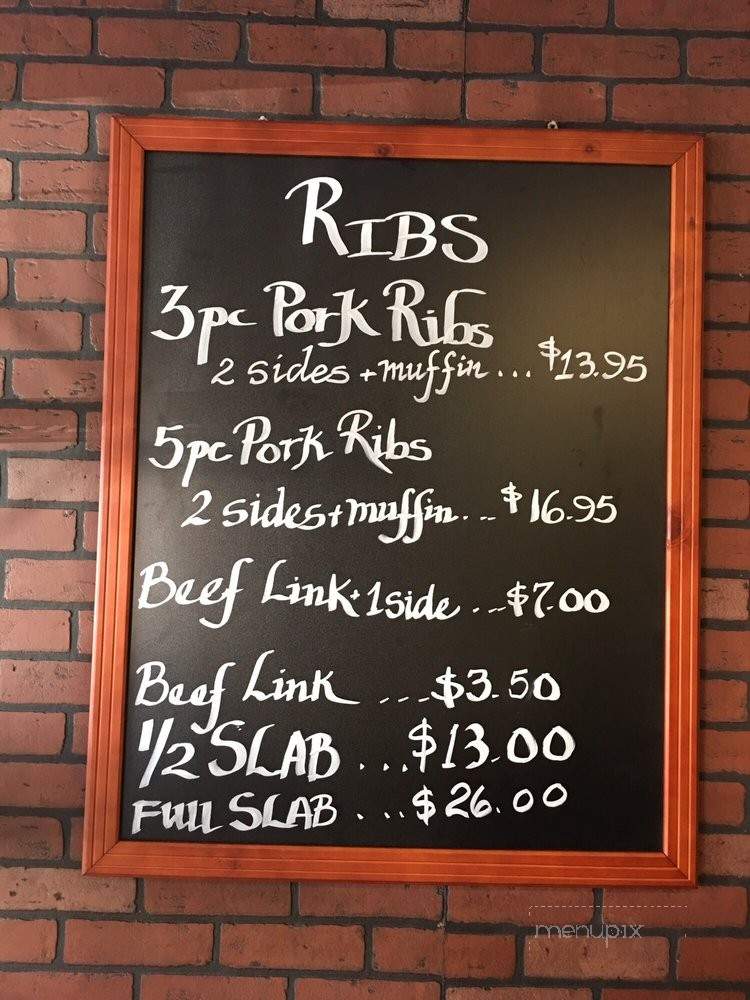 RIBS
3pc Pork Ribs
2 sides + muffin ... $13.95
5pc Pork Ribs
2 sides + muffin... $16.95
Beef Link + 1 side ... $7.00
Beef Link ... $3.50
1/2 SLAB ... $13.00
FULL SLAB ... $26.00
menupix